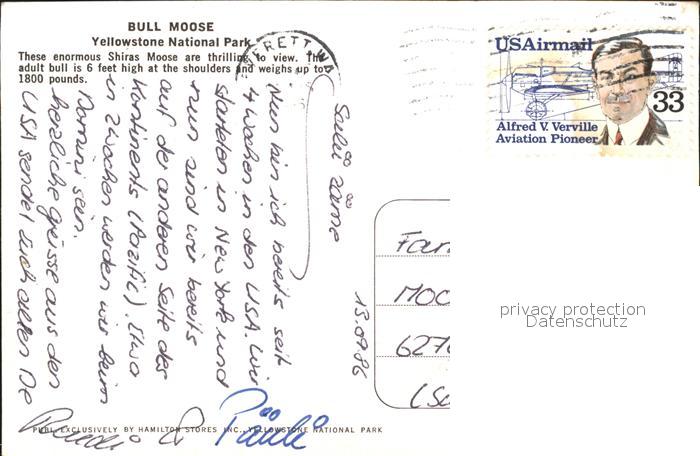 BULL MOOSE
Yellowstone National Park
These enormous Shiras Moose are thrilling to view. The
adult bull is 6 feet high at the shoulders and weighs up to
1800 pounds.
USAirmail
33
Alfred V. Verville
Aviation Pioneer
13.09.86
Salü zäme
Nun bin ich bereits seit
4 Wochen in den USA. Wir
starteten in New York und
nun sind wir bereits
auf der anderen Seite des
Kontinents (Pazific). Etwa
in 2 Wochen werden wir beim
sein.
herzliche Grüsse aus den
USA sendet Euch allen De
Päuli
Fam
MOO
627
(Sc
privacy protection
Datenschutz
PUBL. EXCLUSIVELY BY HAMILTON STORES INC., YELLOWSTONE NATIONAL PARK